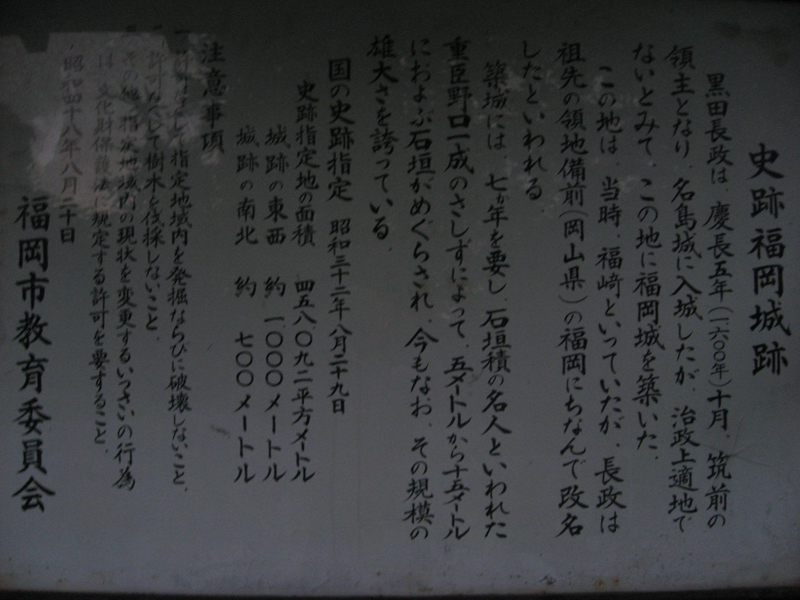 史跡福岡城跡
黒田長政は、慶長五年(一六〇〇年)十月、筑前の
領主となり、名島城に入城したが、治政上適地で
ないとみて、この地に福岡城を築いた。
この地は、当時、福崎といっていたが、長政は
祖先の領地備前(岡山県)の福岡にちなんで改名
したといわれる。
築城には、七ヵ年を要し、石垣積の名人といわれた
重臣野口一成のさしずによって、五メートルから十五メートル
におよぶ石垣がめぐらされ、今もなお、その規模の
雄大さを誇っている。
国の史跡指定 昭和三十二年八月二十九日
史跡指定地の面積 四五八、〇九二平方メートル
城跡の東西 約 一、〇〇〇メートル
城跡の南北 約 七〇〇メートル
注意事項
一 許可なくして指定地域内を発掘ならびに破壊しないこと、
許可なくして樹木を伐採しないこと、
その他、指定地域内の現状を変更するいっさいの行為
は、文化財保護法に規定する許可を要すること、
昭和四十八年八月二十日
福岡市教育委員会